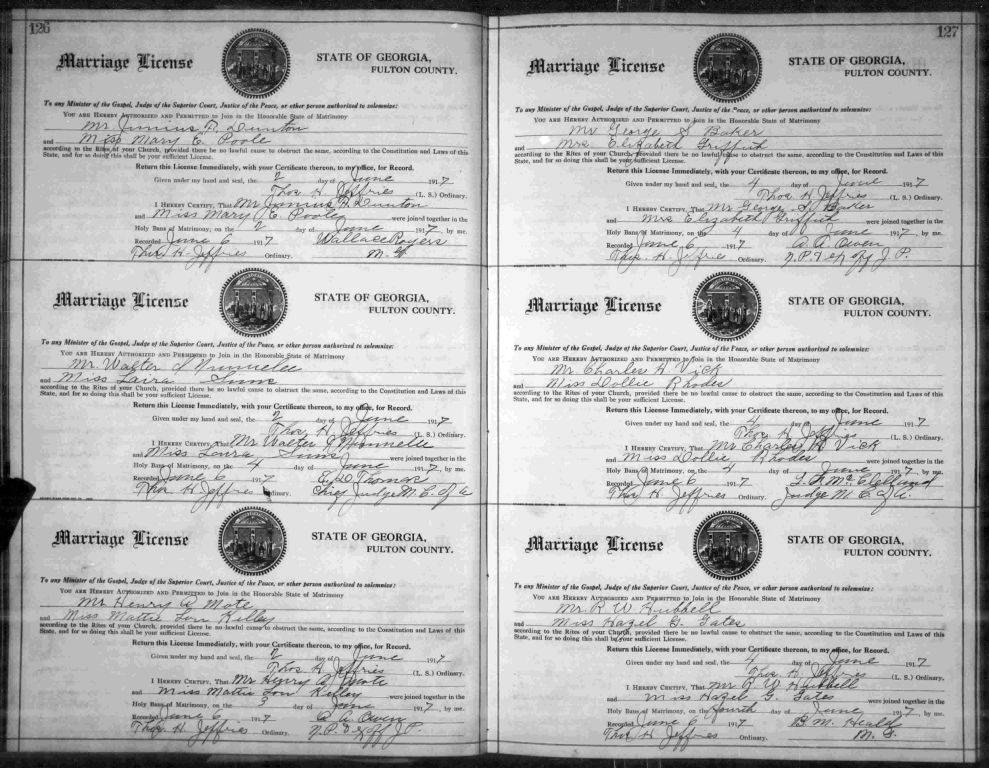 126
Marriage License
STATE OF GEORGIA,
FULTON COUNTY.
To any Minister of the Gospel, Judge of the Superior Court, Justice of the Peace, or other person authorized to solemnize:
YOU ARE HEREBY AUTHORIZED AND PERMITTED to Join in the Honorable State of Matrimony
Mr Junius A. Dunton
and Miss Mary E. Poole
according to the Rites of your Church, provided there be no lawful cause to obstruct the same, according to the Constitution and Laws of this
State, and for so doing this shall be your sufficient License.
Return this License Immediately, with your Certificate thereon, to my office, for Record.
Given under my hand and seal, the 2 day of June 1917
Thos. H. Jeffries (L. S.) Ordinary.
I HEREBY CERTIFY, That Mr Junius A. Dunton
and Miss Mary E. Poole were joined together in the
Holy Bans of Matrimony, on the 2 day of June 1917, by me.
Recorded June 6 1917 Wallace Rogers
Thos. H. Jeffries Ordinary. M. G.
Marriage License
STATE OF GEORGIA,
FULTON COUNTY.
To any Minister of the Gospel, Judge of the Superior Court, Justice of the Peace, or other person authorized to solemnize:
YOU ARE HEREBY AUTHORIZED AND PERMITTED to Join in the Honorable State of Matrimony
Mr. Walter
and Miss Laura Sims
according to the Rites of your Church, provided there be no lawful cause to obstruct the same, according to the Constitution and Laws of this
State, and for so doing this shall be your sufficient License.
Return this License Immediately, with your Certificate thereon, to my office, for Record.
Given under my hand and seal, the 2 day of June 1917
Thos. H. Jeffries (L. S.) Ordinary.
I HEREBY CERTIFY, That Mr Walter
and Miss Laura Sims were joined together in the
Holy Bans of Matrimony, on the 4 day of June 1917, by me.
Recorded June 6 1917 E. D. Thomas
Thos. H. Jeffries Ordinary. Chief Judge M. C. of A
Marriage License
STATE OF GEORGIA,
FULTON COUNTY.
To any Minister of the Gospel, Judge of the Superior Court, Justice of the Peace, or other person authorized to solemnize:
YOU ARE HEREBY AUTHORIZED AND PERMITTED to Join in the Honorable State of Matrimony
Mr. Henry A. Mote
and Miss Mattie Lou Kelley
according to the Rites of your Church, provided there be no lawful cause to obstruct the same, according to the Constitution and Laws of this
State, and for so doing this shall be your sufficient License.
Return this License Immediately, with your Certificate thereon, to my office, for Record.
Given under my hand and seal, the 2 day of June 1917
Thos. H. Jeffries (L. S.) Ordinary.
I HEREBY CERTIFY, That Mr Henry A. Mote
and Miss Mattie Lou Kelley were joined together in the
Holy Bans of Matrimony, on the 3 day of June 1917, by me.
Recorded June 6 1917 A. A. Owen
Thos. H. Jeffries Ordinary. N. P. & Ex off J. P.
127
Marriage License
STATE OF GEORGIA,
FULTON COUNTY.
To any Minister of the Gospel, Judge of the Superior Court, Justice of the Peace, or other person authorized to solemnize:
YOU ARE HEREBY AUTHORIZED AND PERMITTED to Join in the Honorable State of Matrimony
Mr George S. Baker
and Mrs Elizabeth Griffith
according to the Rites of your Church, provided there be no lawful cause to obstruct the same, according to the Constitution and Laws of this
State, and for so doing this shall be your sufficient License.
Return this License Immediately, with your Certificate thereon, to my office, for Record.
Given under my hand and seal, the 4 day of June 1917
Thos. H. Jeffries (L. S.) Ordinary.
I HEREBY CERTIFY, That Mr George S. Baker
and Mrs Elizabeth Griffith were joined together in the
Holy Bans of Matrimony, on the 4 day of June 1917, by me.
Recorded June 6 1917 A. A. Owen
Thos. H. Jeffries Ordinary. N. P. & Ex off J. P.
Marriage License
STATE OF GEORGIA,
FULTON COUNTY.
To any Minister of the Gospel, Judge of the Superior Court, Justice of the Peace, or other person authorized to solemnize:
YOU ARE HEREBY AUTHORIZED AND PERMITTED to Join in the Honorable State of Matrimony
Mr. Charles H. Vick
and Miss Dollie Rhodes
according to the Rites of your Church, provided there be no lawful cause to obstruct the same, according to the Constitution and Laws of this
State, and for so doing this shall be your sufficient License.
Return this License Immediately, with your Certificate thereon, to my office, for Record.
Given under my hand and seal, the 4 day of June 1917
Thos. H. Jeffries (L. S.) Ordinary.
I HEREBY CERTIFY, That Mr Charles H. Vick
and Miss Dollie Rhodes were joined together in the
Holy Bans of Matrimony, on the 4 day of June 1917, by me.
Recorded June 6 1917 McClelland
Thos. H. Jeffries Ordinary. Judge M. C. of A.
Marriage License
STATE OF GEORGIA,
FULTON COUNTY.
To any Minister of the Gospel, Judge of the Superior Court, Justice of the Peace, or other person authorized to solemnize:
YOU ARE HEREBY AUTHORIZED AND PERMITTED to Join in the Honorable State of Matrimony
Mr. R. W. Hubbell
and Miss Hazel G. Gates
according to the Rites of your Church, provided there be no lawful cause to obstruct the same, according to the Constitution and Laws of this
State, and for so doing this shall be your sufficient License.
Return this License Immediately, with your Certificate thereon, to my office, for Record.
Given under my hand and seal, the 4 day of June 1917
Thos. H. Jeffries (L. S.) Ordinary.
I HEREBY CERTIFY, That Mr R. W. Hubbell
and Miss Hazel G. Gates were joined together in the
Holy Bans of Matrimony, on the fourth day of June 1917, by me.
Recorded June 6 1917 B. M. Heald
Thos. H. Jeffries Ordinary. M. G.